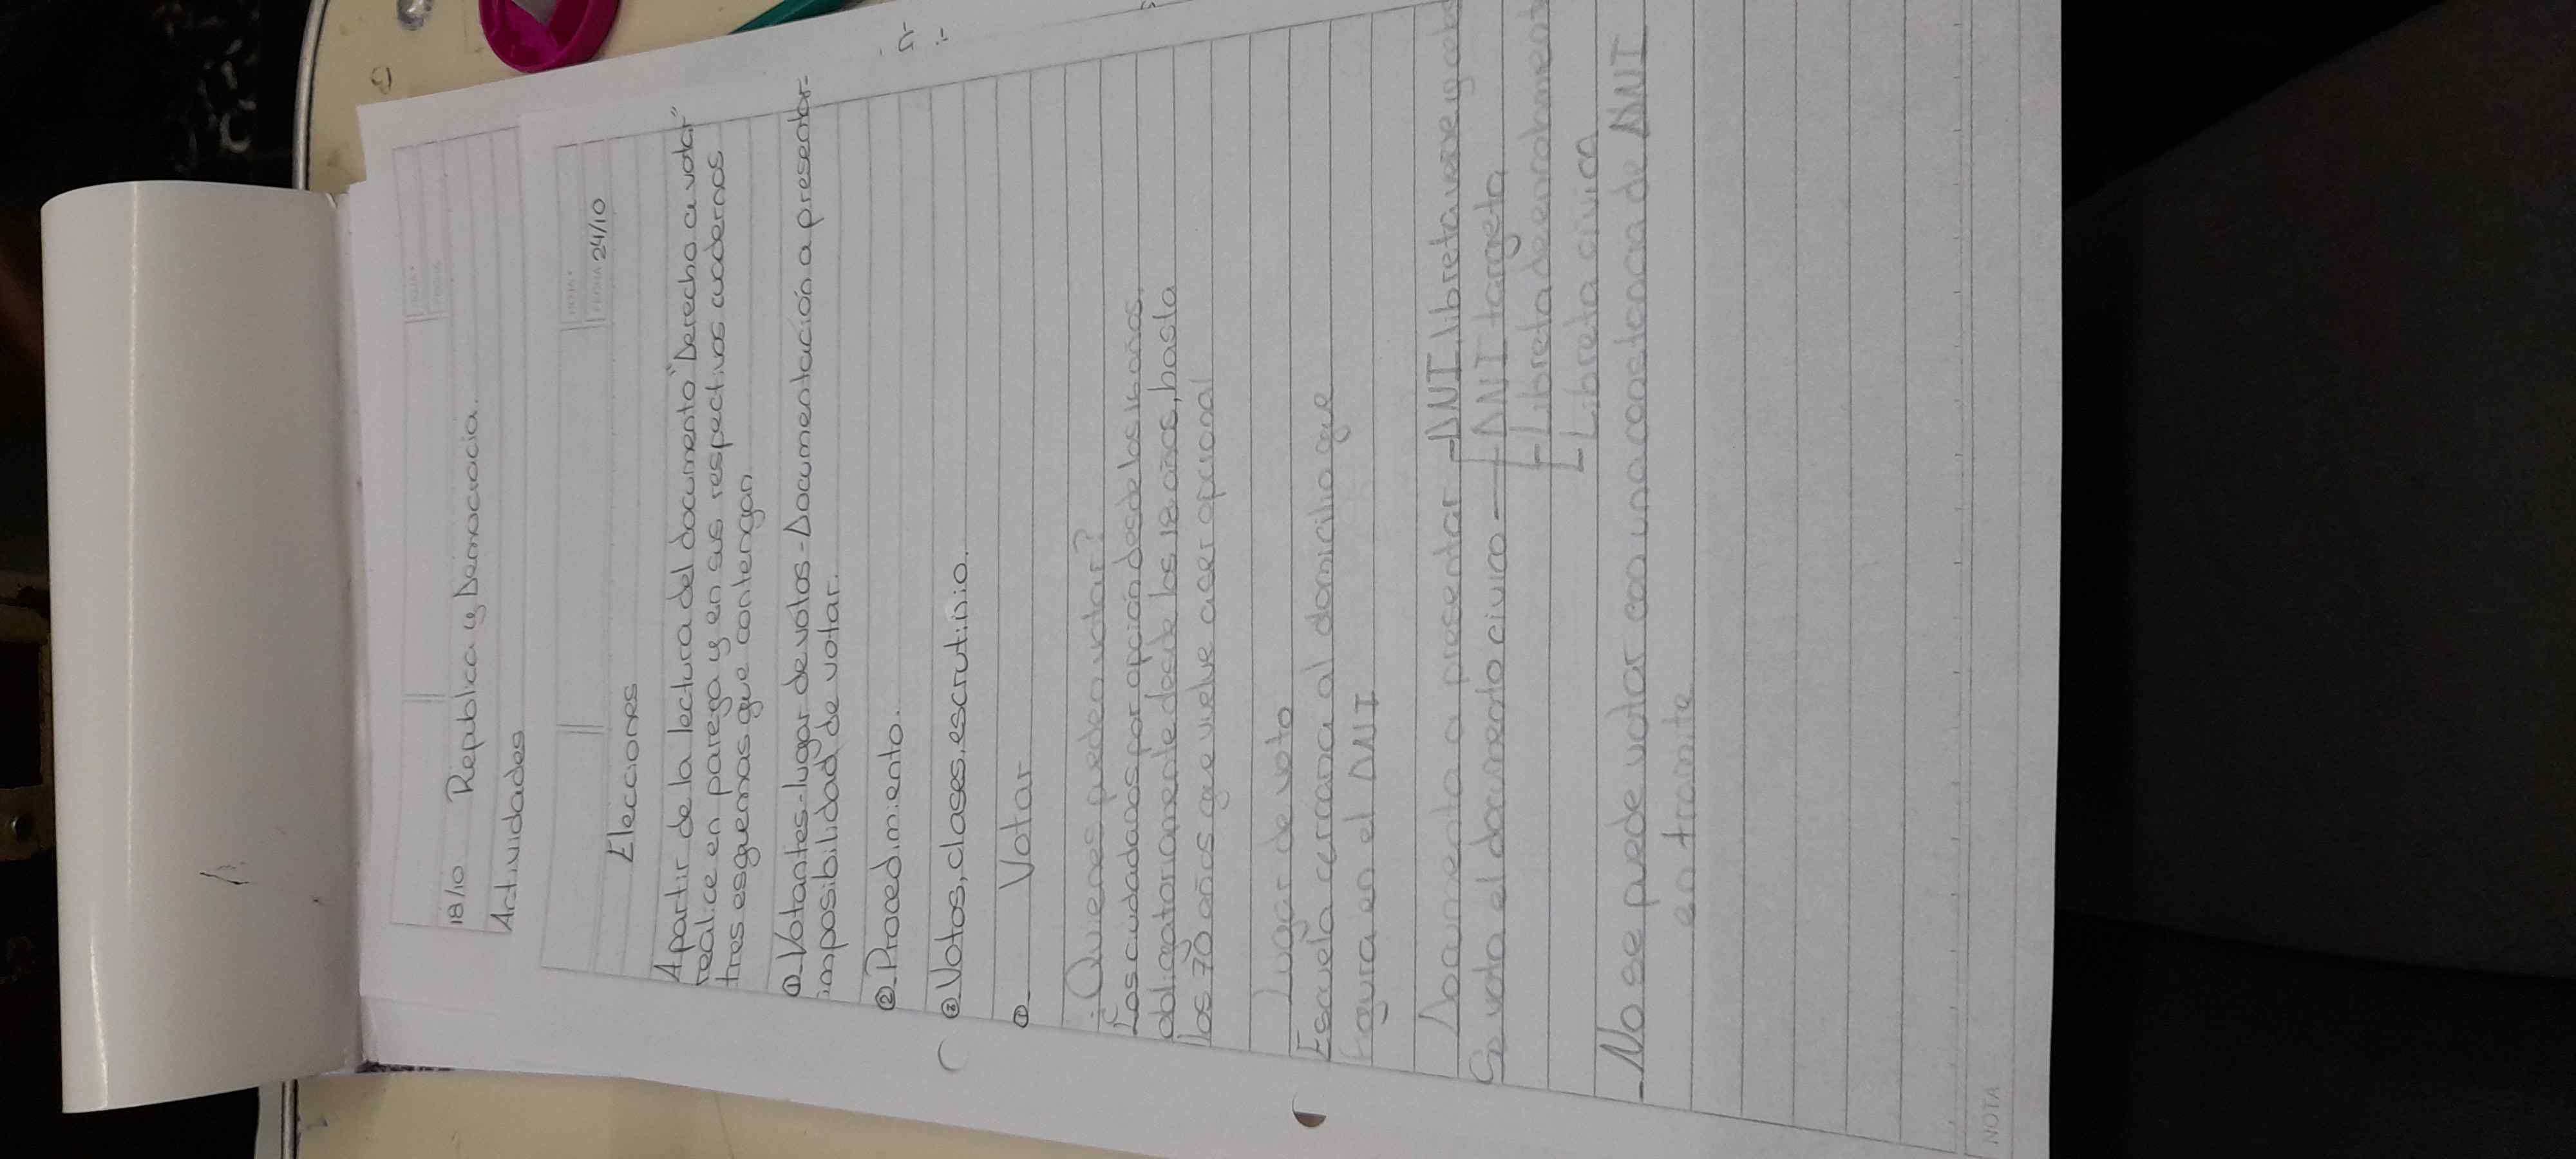 18/10 Republica y Democracia.
Actividades
HOJA Nº
FECHA
HOJA Nº
FECHA 24/10
Elecciones
A partir de la lectura del documento "Derecho a votar"
realice en pareja y en sus respectivos cuadernos
tres esquemas que contengan
① Votantes-lugar de votos-Documentación a presentar-
imposibilidad de votar.
② Procedimiento.
③ Votos, clases, escrutinio.
① Votar
¿Quienes pueden votar?
Los ciudadanos por opción desde los 16 años,
obligatoriamente desde los 18 años, hasta
los 70 años que vuelve a ser opcional
Lugar de voto
Escuela cercana al domicilio que
figura en el DNI
Documento a presentar -DNI libreta verde y celeste
Se vota el documento civico - DNI targeta
- Libreta de enrolamiento
- Libreta civica
- No se puede votar con una constancia de DNI
en tramite
NOTA